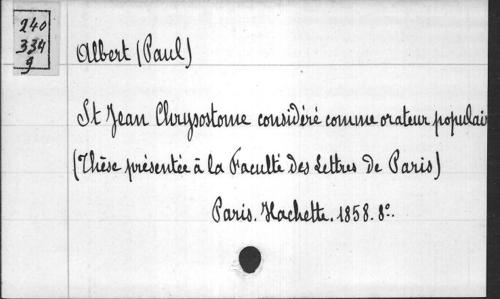 240
334
g
Albert (Paul)
St Jean Chrysostome considéré comme orateur populair
(Thèse présentée à la Faculté des Lettres de Paris)
Paris. Hachette. 1858. 8º.